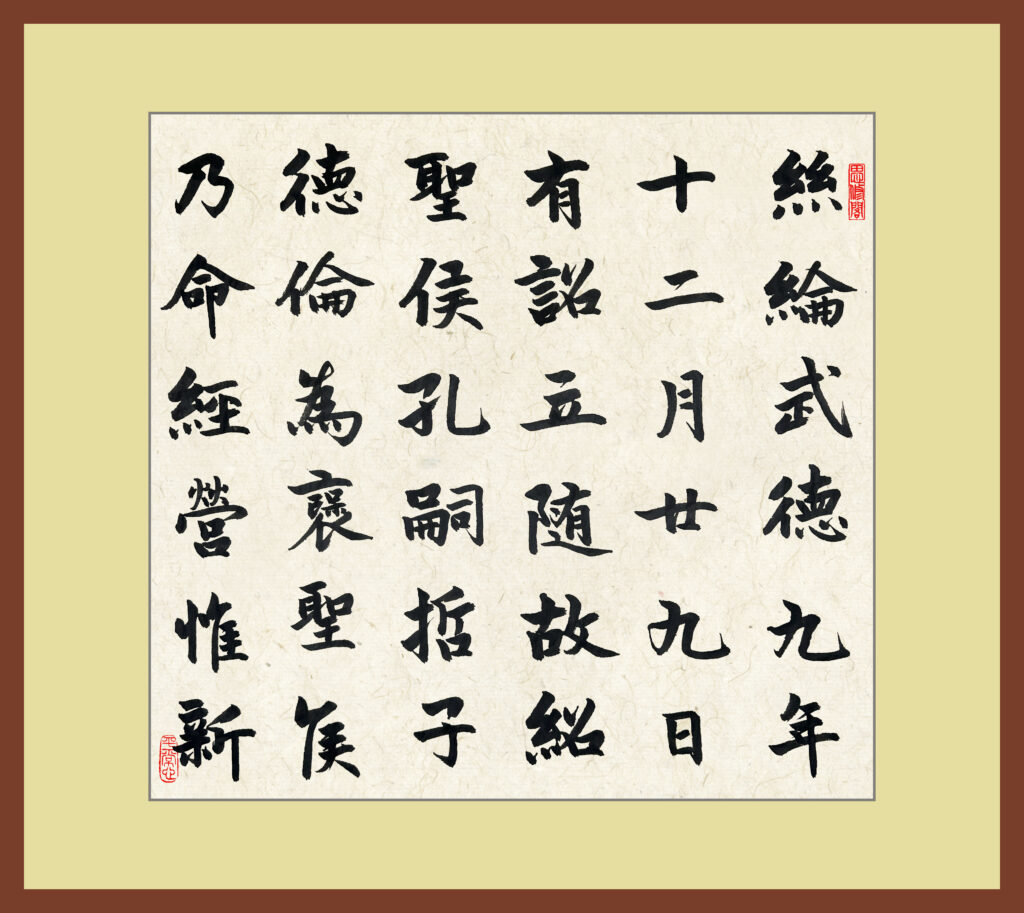 絲綸武德九年
十二月廿九日
有詔立随故紹
聖侯孔嗣哲子
德倫為褒聖侯
乃命經營惟新
思修閣
平常心